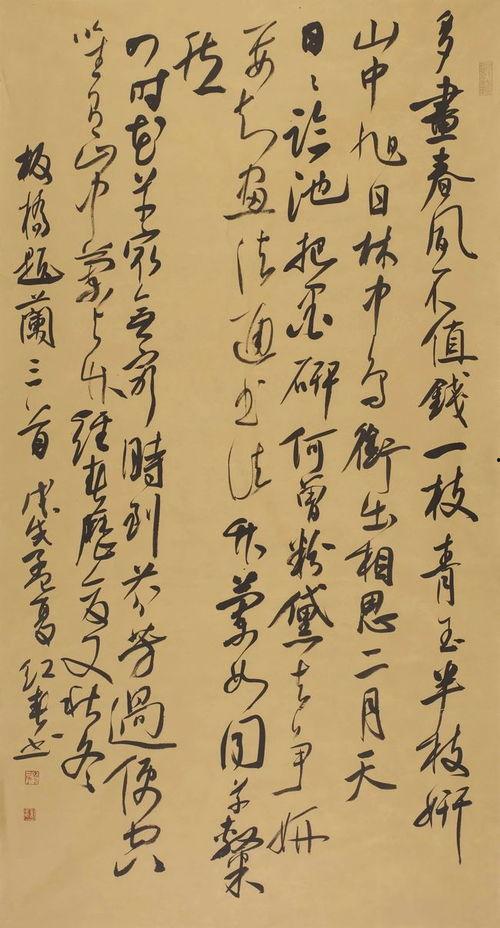 多畫春風不值錢一枝青玉半枝妍
山中旭日林中鳥銜出相思二月天
日々臨池把墨研何曾粉黛去爭妍
要知畫法通書法竹蘭如同草隸
然
四時花草最無窮時到芬芳過便空
唯有山中蘭与竹經春歷夏又秋冬
板橋題蘭三首 戊戌孟夏 紅春书